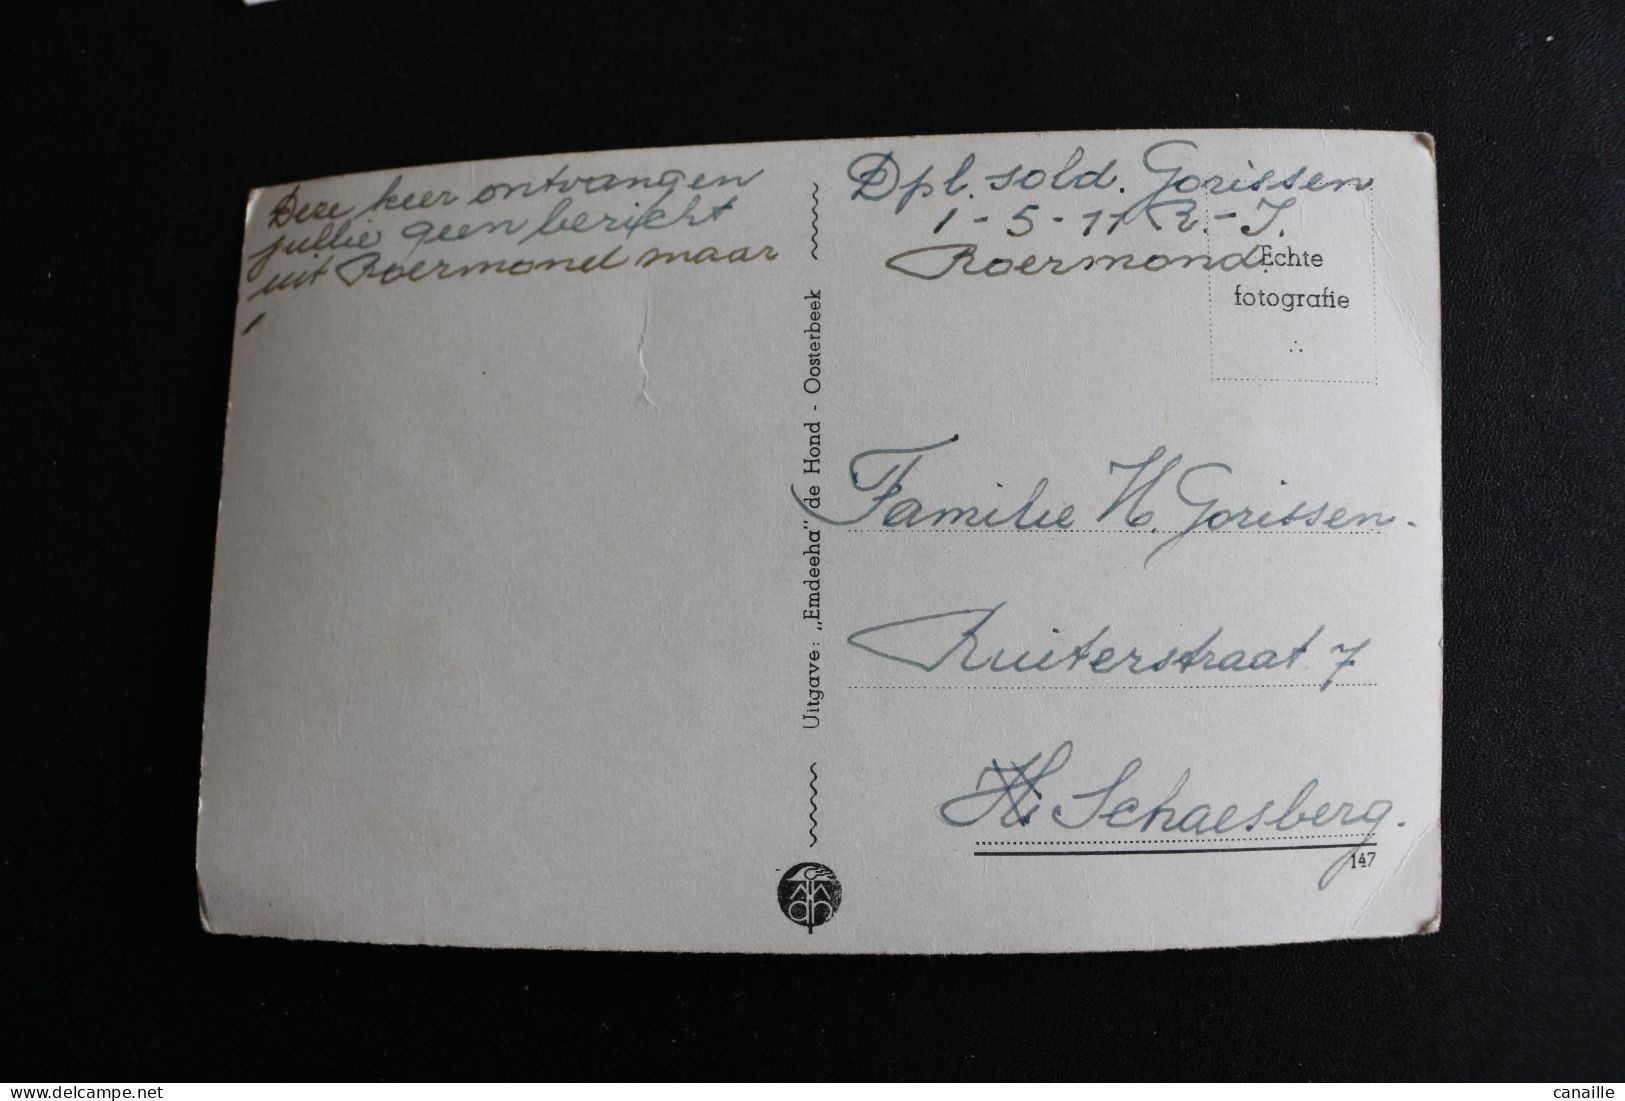 Deze keer ontvangen
jullie geen bericht
uit Roermond maar
Dpl. sold. Gorissen
1-5-11 R.-I.
Roermond.
Echte
fotografie
Uitgave: „Emdeeha" de Hond - Oosterbeek
Familie H. Gorissen.
Ruiterstraat 7
Schaesberg.
147
delcampe.net
canaille